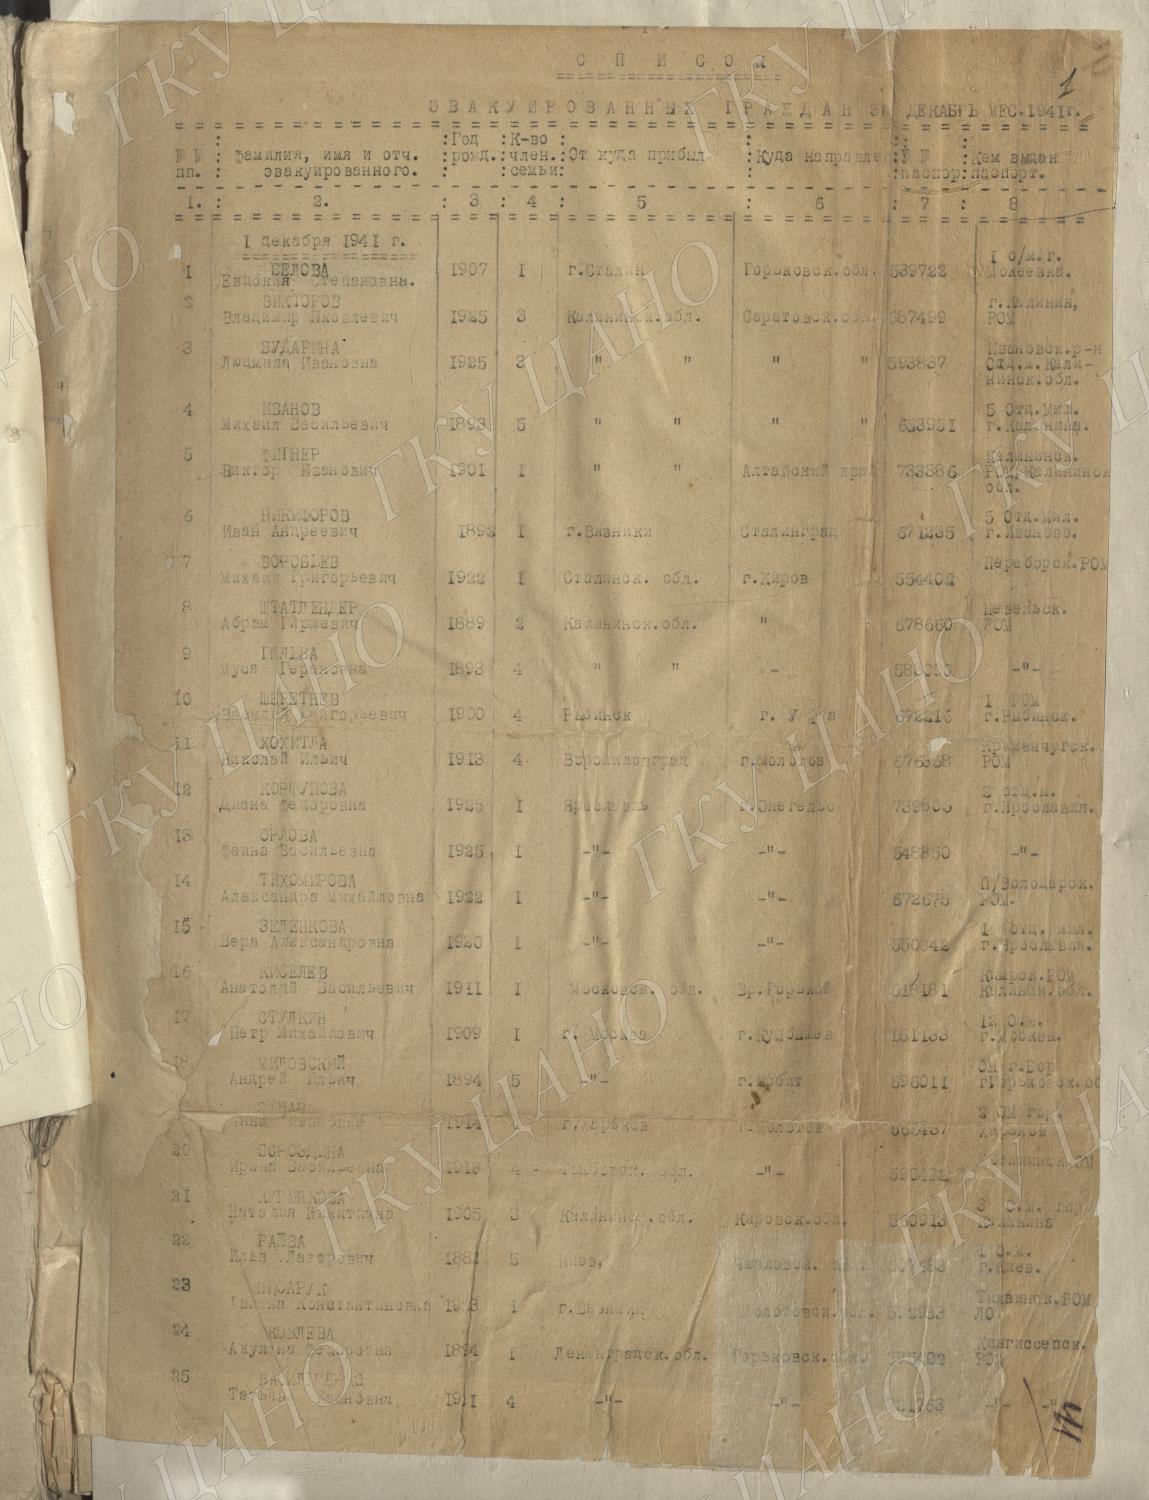 1
С П И С О К
ЭВАКУИРОВАННЫХ ГРАЖДАН ЗА ДЕКАБРЬ МЕС. 1941 г.
№№ пп. : Фамилия, имя и отч. эвакуированного. : Год рожд. : К-во член. семьи : От куда прибыл : Куда направлен : №№ паспор. : Кем выдан паспорт.
I. : 2. : 3 : 4 : 5 : 6 : 7 : 8
I декабря 1941 г.
1 БЕЛОВА Евдокия Степановна. 1907 I г.Сталин Горьковск.обл. 539722 I о/м.г. Мокеевка.
2 ВИКТОРОВ Владимир Яковлевич 1925 3 Калининск.обл. Саратовск.обл. 687499 г.Калинин, РОМ
3 БУДАРИНА Людмила Ивановна 1925 3 " " " " 593837 Ивановск.р-н Отд.м.Кали- нинск.обл.
4 ИВАНОВ Михаил Васильевич 1893 5 " " " " 633951 5 Отд.Мил. г.Калинина.
5 ФИГНЕР Виктор Иванович 1901 I " " Алтайский край 733386 Калининск. РОМ,Калининск обл.
6 НИКИФОРОВ Иван Андреевич 1892 I г.Вязники Сталинград 671235 5 Отд.Мил. г.Иваново.
7 ВОРОБЬЕВ Михаил Григорьевич 1922 I Сталинск. обл. г.Киров 554402 Переборск.РОМ
8 ШТАТЛЕНДЕР Абрам Гиршевич 1889 2 Калининск.обл. " 678660 Невельск. РОМ
9 Муся 1893 4 " " -"-
10 Василий Григорьевич 1900 4 Рыбинск г. Уфа 672216 I РОМ г.Рыбинск.
11 ХОХИТЛА Николай Ильич 1913 4 Ворошиловград г.Молотов 676368 Кременчугск. РОМ
12 КОВШУПОВА Диана Федоровна 1925 I Ярославль г.Энегельс 2 отд.м. г.Ярославля.
13 ОРЛОВА Фаина Васильевна 1925 I -"- -"- 548850 -"-
14 ТИХОМИРОВА Александра Михайловна 1922 I -"- -"- 672675 П/Володарск. РОМ.
15 ЗЕЛЕНКОВА Вера Александровна 1920 I -"- -"- 550842 I отд. мил. г.Ярославля.
16 КИСЕЛЕВ Анатолий Васильевич 1911 I Московск. обл. Гр.Горький 618181 Кимрск.РОМ Калинин.обл.
17 СТУЛКИН Петр Михайлович 1909 I г. Москва г.Куйбышев 161133 12 О.М. г.Москвы.
18 МИЛОВСКИЙ Андрей Ильич 1894 5 -"- г.Ирбит 596011 ОМ г.Бор гГорьковск.об
Анна Ивановна 1914 г.Харьков г.Молотов 2 ОМ гор. Харьков
20 БОРОЗДИНА Ирина Васильевна 1913 4 Тамбовск. обл. -"- РОМ
21 Наталья Никитична 1905 3 Калининск.обл. Кировск.обл. 560913 3 О.М. гор. Калинина
22 Илья Лазеревич 5 Киев, Чкаловск. обл. I О.М. г.Киев.
23 Галина Константиновна I г.Вязники Молотовск.обл. Тихвинск.РОМ ЛО
24 ЯКОВЛЕВА Акулина Федоровна 1894 I Ленинградск.обл. Горьковск.обл. Кингиссепск. РОМ
25 ВАСИЛЬЧЕНКО 1911 4 -"- -"- -"- -"-
ГКУ ЦАНО